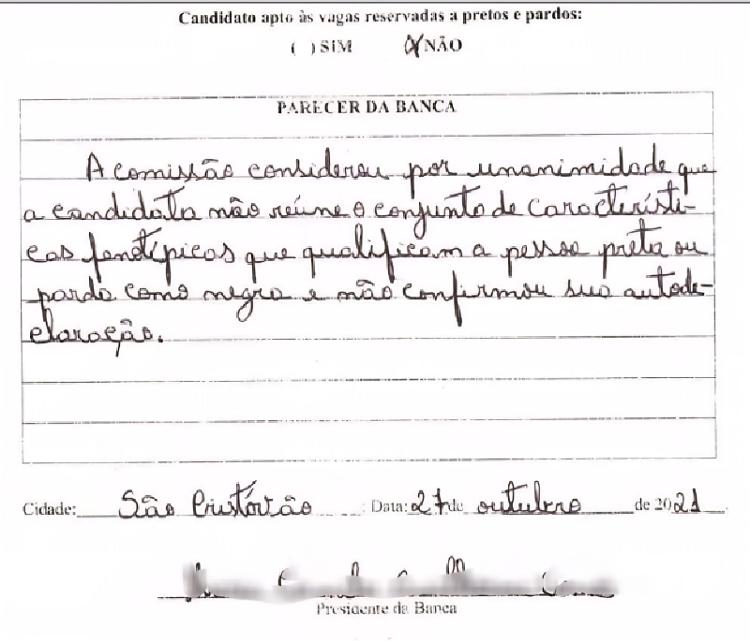 Candidato apto às vagas reservadas a pretos e pardos:
( ) SIM (X) NÃO
PARECER DA BANCA
A comissão considerou por unanimidade que
a candidata não reúne o conjunto de característi-
cas fenotípicas que qualificam a pessoa preta ou
parda como negra e não confirmou sua autode-
claração.
Cidade: São Cristóvão Data: 27 de outubro de 2021
Presidente da Banca